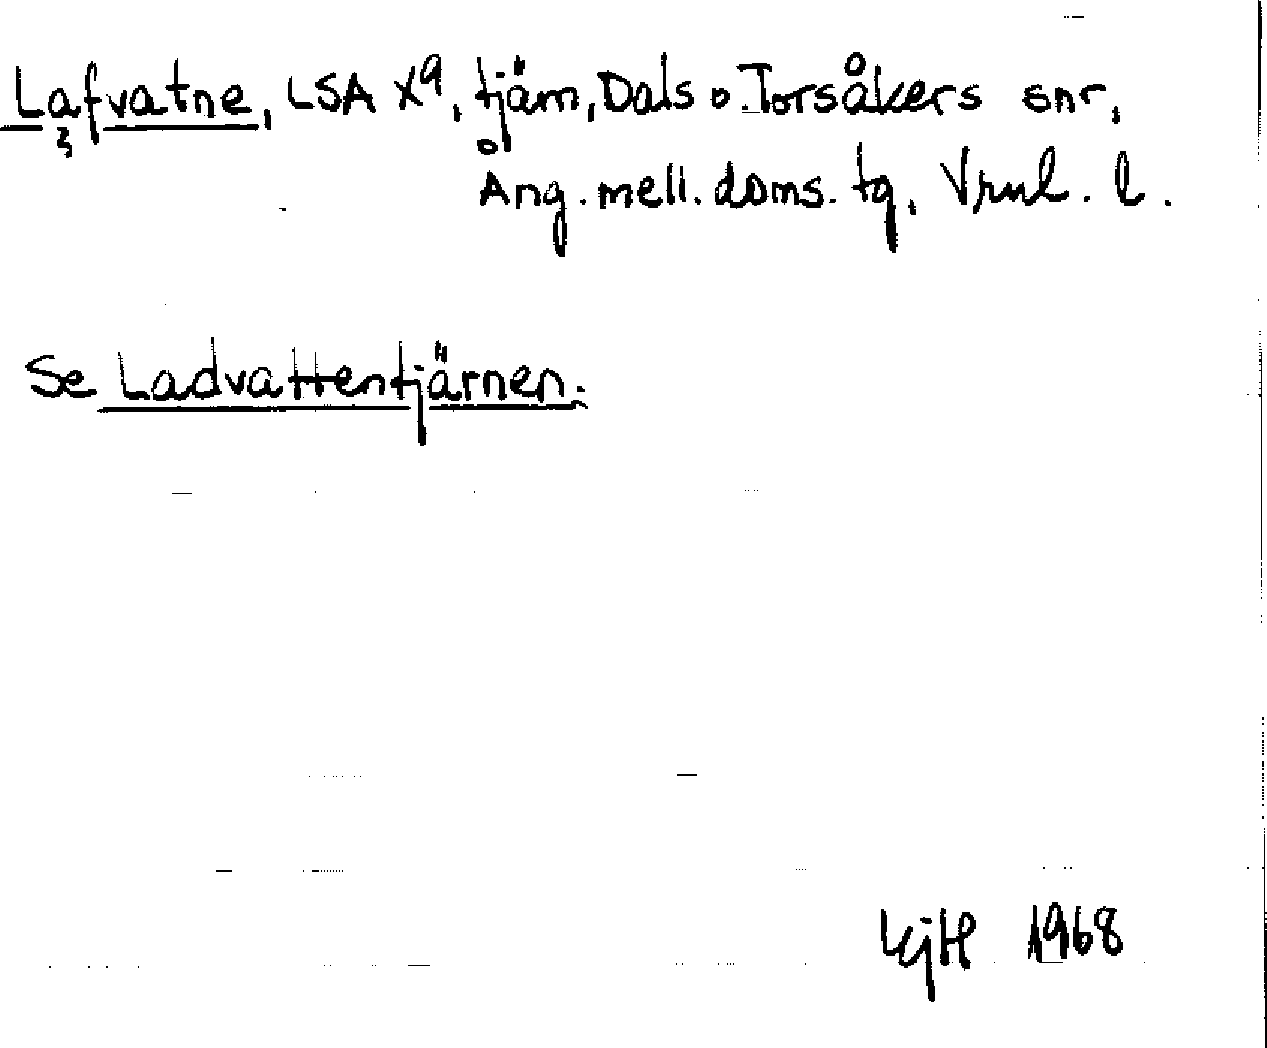 Lafvatne, LSA X9, tjärn, Dals o. Torsåkers snr,
Ång. mell. doms. tg, Vrnl. l.
Se Ladvattentjärnen.
1968